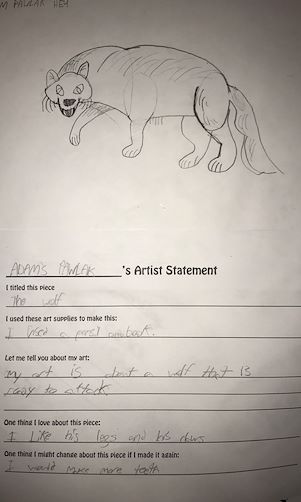 M PAWLAK HEY
ADAM'S PAWLAK 's Artist Statement
I titled this piece
The wolf
I used these art supplies to make this:
I Used a
Let me tell you about my art:
My art is about a wolf that is
ready to attack.
One thing I love about this piece:
I Like his legs and his
One thing I might change about this piece if I made it again:
I would make more teeth